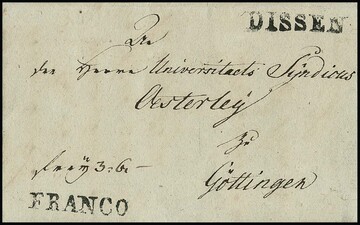 DISSEN
An
den Herrn Universitaets Syndicus
Oesterley
zu
Göttingen
frey 3:6
FRANCO